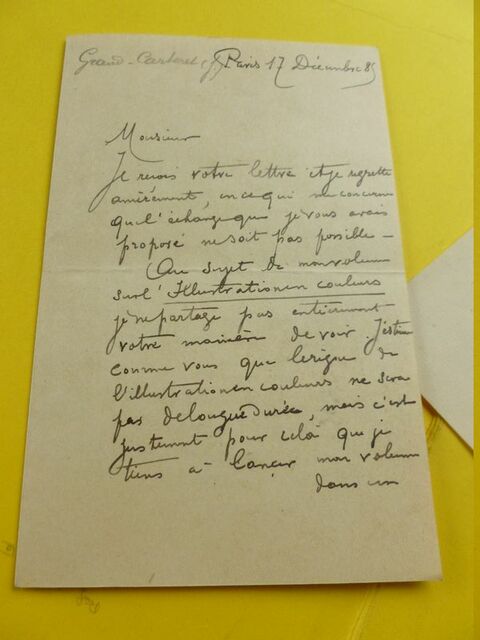 Grand-Carteret (J) Paris 17 Décembre 85
Monsieur
Je reçois votre lettre et je regrette
amèrement, en ce qui me concerne
que l'échange que je vous avais
proposé ne soit pas possible –
Au sujet de mon volume
sur l'Illustration en couleurs
je ne partage pas entièrement
votre manière de voir J'estime
comme vous que le règne de
l'illustration en couleurs ne sera
pas de longue durée, mais c'est
justement pour cela que je
tiens à lancer mon volume
dans un